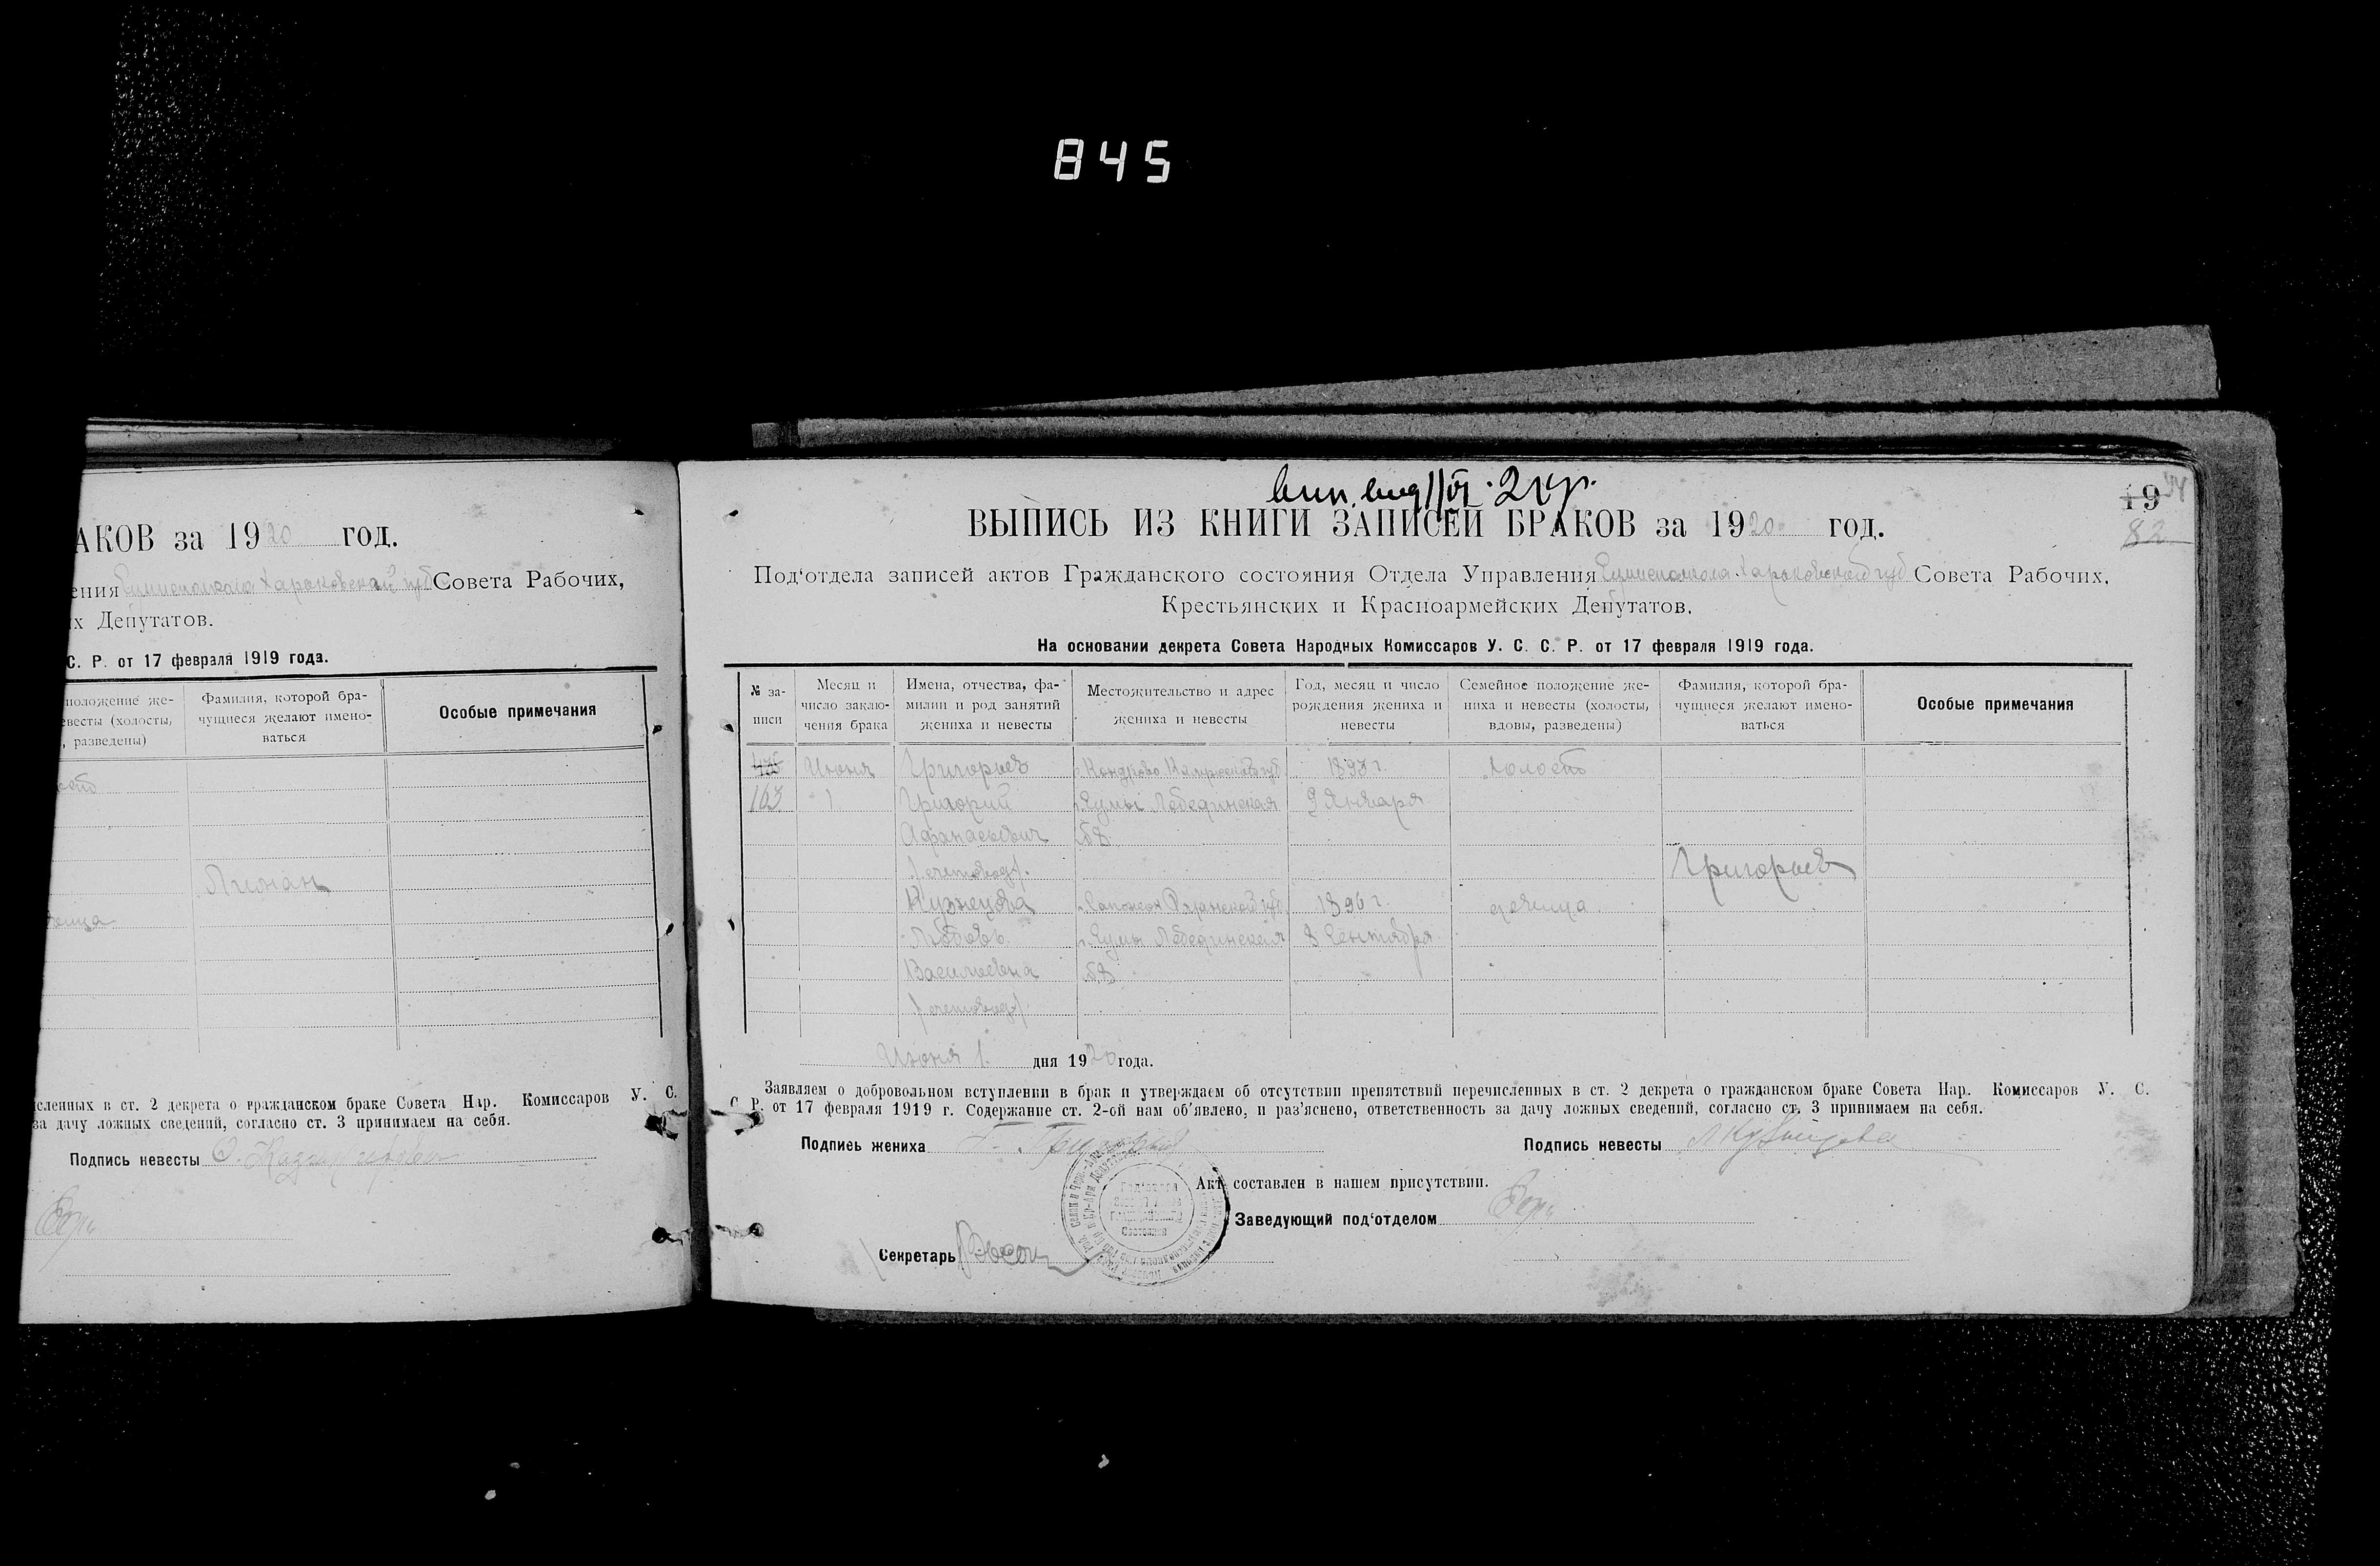 845
АКОВ за 1920 год.
ения Сумисполкома Харьковской губ Совета Рабочих,
х Депутатов.
С. Р. от 17 февраля 1919 года.
положение же-
евесты (холосты,
, разведены)
Фамилия, которой бра-
чущиеся желают имено-
ваться
Особые примечания
сленных в ст. 2 декрета о гражданском браке Совета Нар. Комиссаров У. С.
за дачу ложных сведений, согласно ст. 3 принимаем на себя.
Подпись невесты
19
82
ВЫПИСЬ ИЗ КНИГИ ЗАПИСЕЙ БРАКОВ за 1920 год.
Под‘отдела записей актов Гражданского состояния Отдела Управления Сумисполкома Харьковской губ Совета Рабочих,
Крестьянских и Красноармейских Депутатов.
На основании декрета Совета Народных Комиссаров У. С. С. Р. от 17 февраля 1919 года.
№ за-
писи
Месяц и
число заклю-
чения брака
Имена, отчества, фа-
милии и род занятий
жениха и невесты
Местожительство и адрес
жениха и невесты
Год, месяц и число
рождения жениха и
невесты
Семейное положение же-
ниха и невесты (холосты,
вдовы, разведены)
Фамилия, которой бра-
чущиеся желают имено-
ваться
Особые примечания
Июня Григорьев 1893 г. холост
163 1 Григорий г. Сумы Лебединская 9 Января
Афанасьевич
/счетовод/.
Григорьев
Кузнецова Рязанской губ. 1896 г. девица
Любовь г. Сумы Лебединская 8 Сентября
Васильевна
/счетовод/.
Июня 1. дня 1920 года.
Заявляем о добровольном вступлении в брак и утверждаем об отсутствии препятствий перечисленных в ст. 2 декрета о гражданском браке Совета Нар. Комиссаров У. С.
С. Р. от 17 февраля 1919 г. Содержание ст. 2-ой нам об‘явлено, и раз‘яснено, ответственность за дачу ложных сведений, согласно ст. 3 принимаем на себя.
Подпись жениха Г. Григорьев Подпись невесты Л Кузнецова
Акт составлен в нашем присутствии.
Заведующий под‘отделом
Секретарь